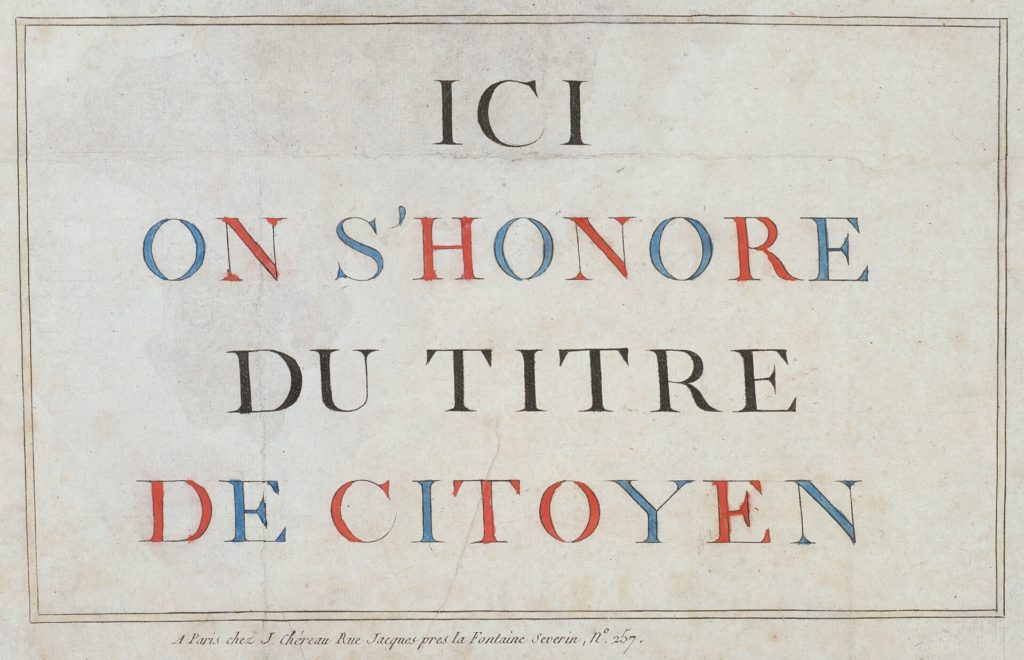 ICI
ON S'HONORE
DU TITRE
DE CITOYEN
A Paris chez J. Chéreau Rue Jacques pres la Fontaine Severin, N°. 257.